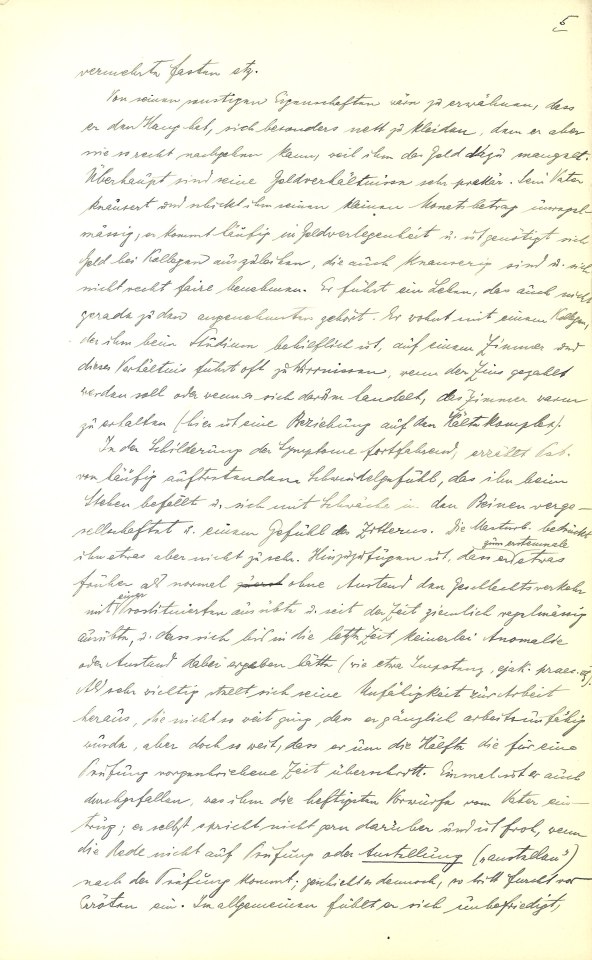 5
vermehrte fasten etz.
Von seinen sonstigen Eigenschaften wäre zu erwähnen, dass
er den Hang hat, sich besonders nett zu kleiden, dem er aber
nie so recht nachgehen kann, weil ihm das Geld dazu mangelt.
Überhaupt sind seine Geldverhältnisse sehr prekär. Sein Vater
knausert und schickt ihm seinen kleinen Monatsbetrag unregel-
mässig, er kommt häufig in Geldverlegenheit u. ist genötigt sich
Geld bei Kollegen auszuleihen, die auch knauserig sind u. sich
nicht recht faire benehmen. Er führt ein Leben, das auch nicht
gerade zu den angenehmsten gehört. Er wohnt mit einem Kollegen,
der ihm beim Studium behilflich ist, auf einem Zimmer und
dieses Verhältnis führt oft zu Wirrnissen, wenn der Zins gezahlt
werden soll oder wenn es sich darum handelt, das Zimmer warm
zu erhalten (hier ist eine Beziehung auf den Kältekomplex).
In der Schilderung der Symptome fortfahrend, erzählt Pat.
von häufig auftretendem Schwindelgefühl, das ihn beim
Stehen befällt u. sich mit Schwäche in den Beinen verge-
sellschaftet u. einem Gefühl des Zitterns. Die Masturb. bedrückt
ihn etwas aber nicht zu sehr. Hinzuzufügen ist, dass er zum erstenmale etwas
früher als normal ohne Anstand den Geschlechtsverkehr
mit einer Prostituierten ausübte u. seit der Zeit ziemlich regelmässig
ausübte, u. dass sich bis in die letzte Zeit keinerlei Anomalie
oder Anstand dabei ergeben hätte (wie etwa Impotenz, ejak. praec. etz).
Als sehr wichtig stellt sich seine Unfähigkeit zur Arbeit
heraus, die nicht so weit ging, dass er gänzlich arbeitsunfähig
wurde, aber doch so weit, dass er um die Hälfte die für eine
Prüfung vorgeschriebene Zeit überschritt. Einmal ist er auch
durchgefallen, was ihm die heftigsten Vorwürfe vom Vater ein-
trug; er selbst spricht nicht gern darüber und ist froh, wenn
die Rede nicht auf Prüfung oder Anstellung („anstellen“)
nach der Prüfung kommt; geschieht es dennoch, so tritt Furcht vor
Erröten ein. Im allgemeinen fühlt er sich unbefriedigt,